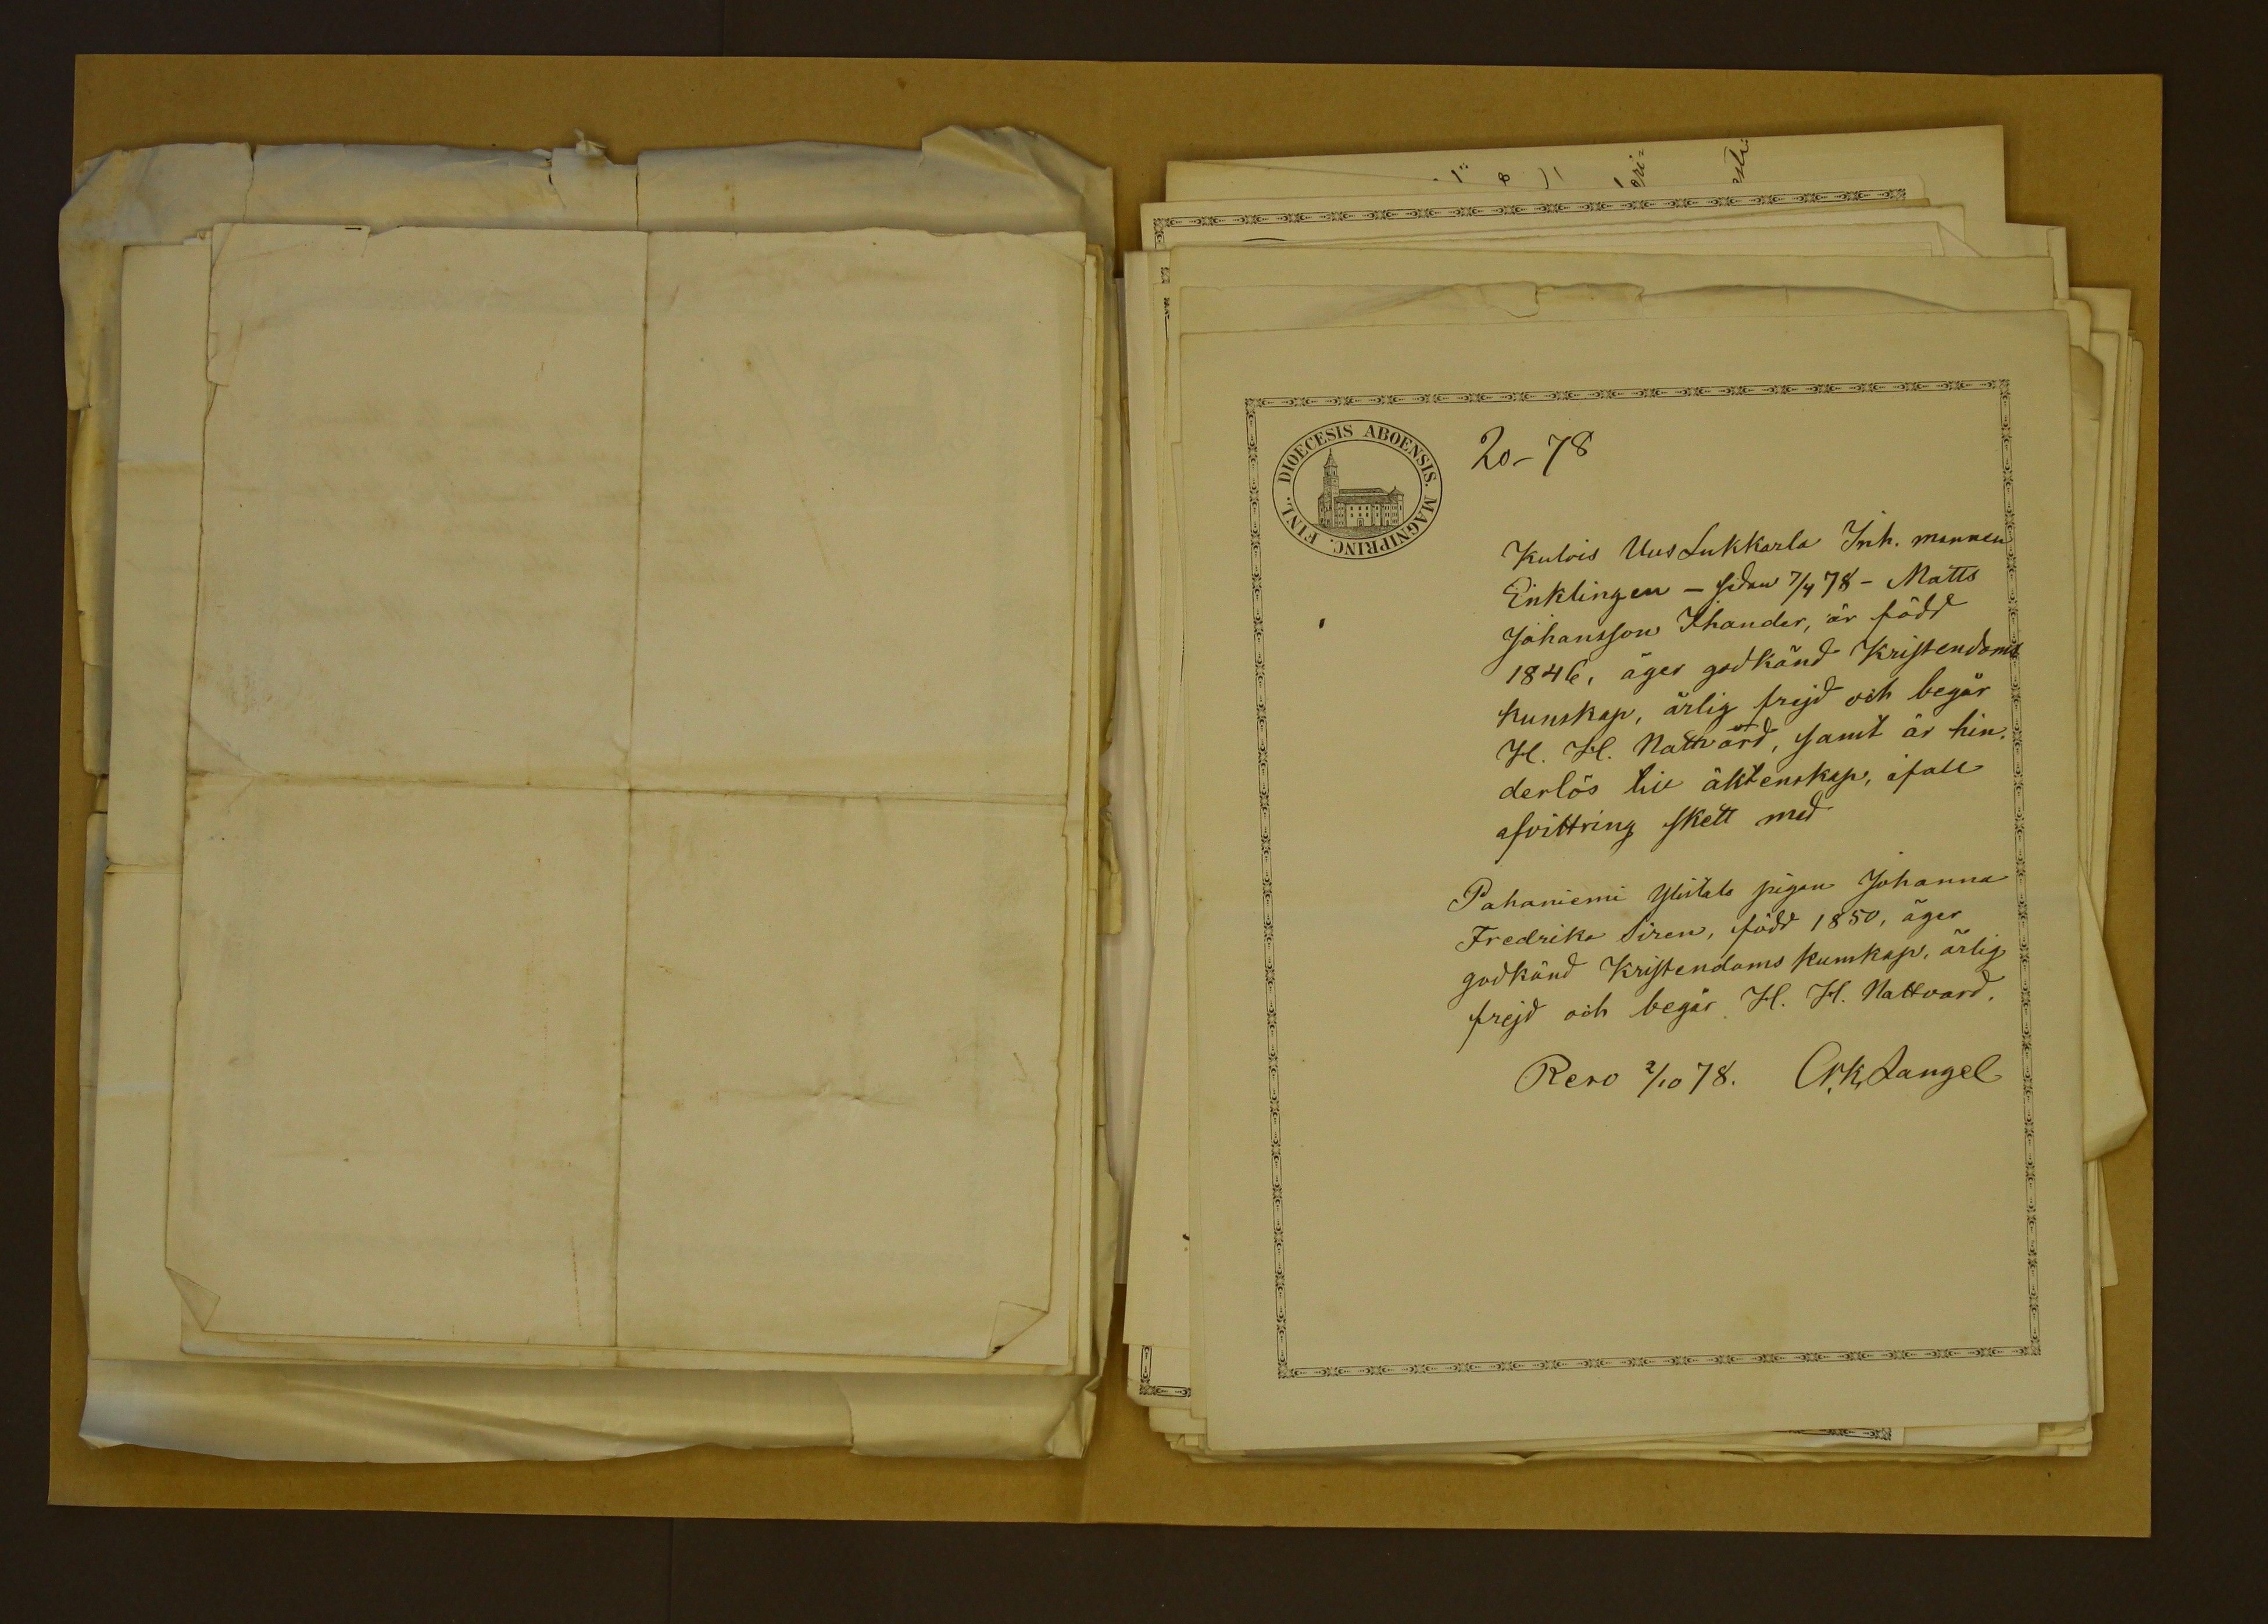 20-78
DIOECESIS ABOENSIS. MAGNI PRINC. FINL.
Kulois Uus Lukkarla Inh. mannen
Enklingen - sedan 7/4 78 - Matts
Johansson Ihander, är född
1846, äger godkänd Kristendoms
kunskap, ärlig frejd och begår
H. H. Nattvard, samt är hin-
derlös till äktenskap, ifall
afvittring skett med
Pahaniemi Ylistalo pigan Johanna
Fredrika Siren, född 1850, äger
godkänd Kristendoms kunskap, ärlig
frejd och begår H. H. Nattvard.
Reso 2/10 78. Langel